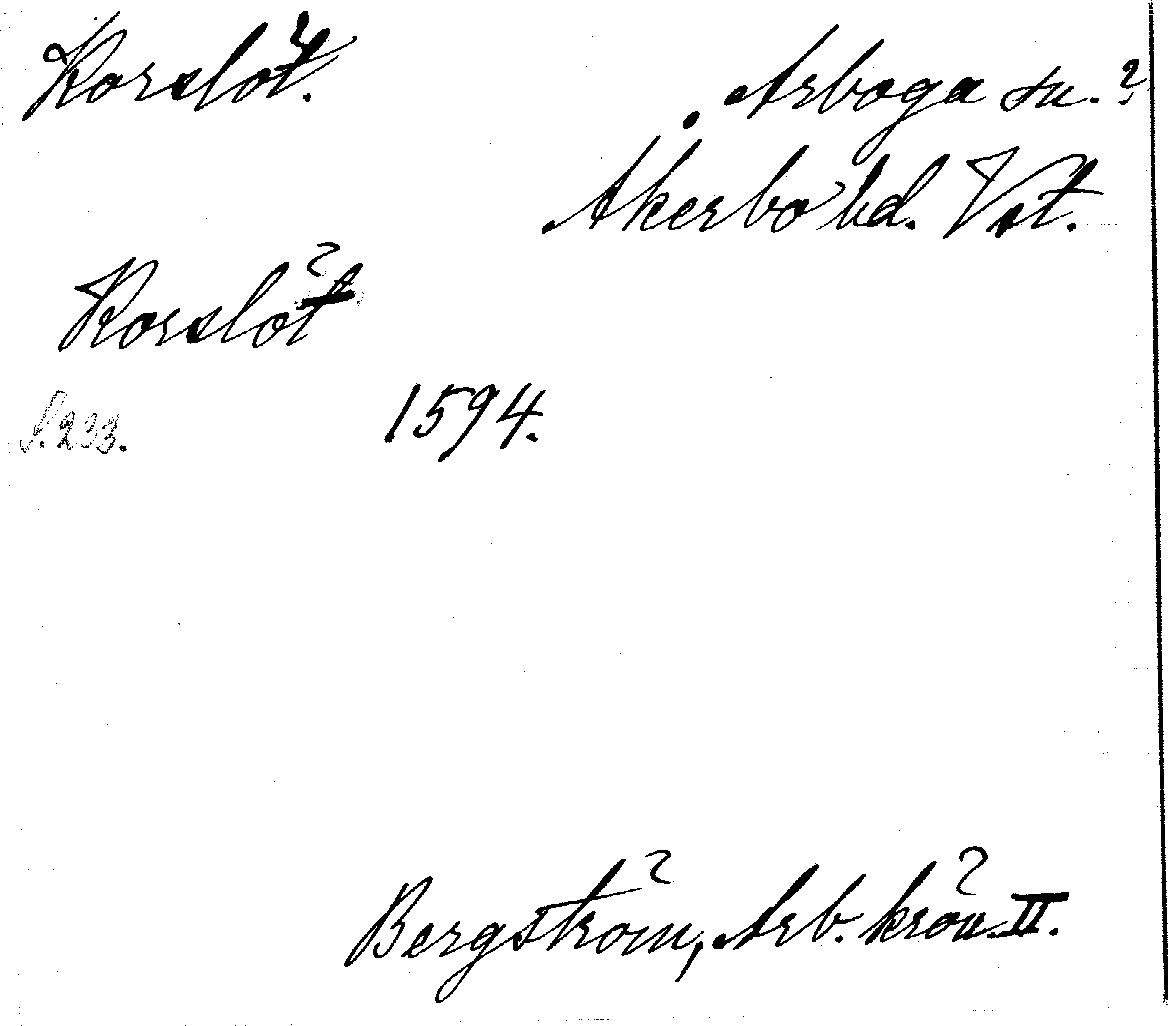 Korslöt.
Arboga sn.?
Åkerbo hd. Vst.
Korslöt
S. 233. 1594.
Bergström, Arb. krön. II.